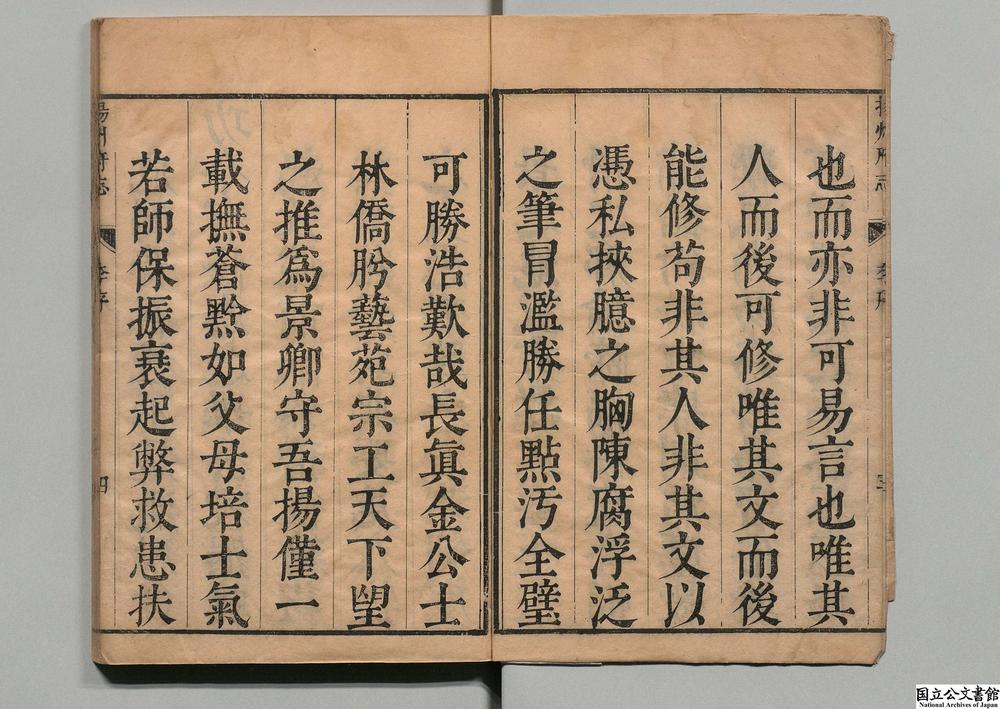 也而亦非可易言也唯其
人而後可修唯其文而後
能修苟非其人非其文以
憑私挾臆之胸陳腐浮泛
之筆冒濫勝任點污全璧
可勝浩歎哉長眞金公士
林僑肸藝苑宗工天下望
之推爲景卿守吾揚僅一
載撫蒼黔如父母培士氣
若師保振衰起弊救患扶
揚州府志
李序
四
国立公文書館
National Archives of Japan